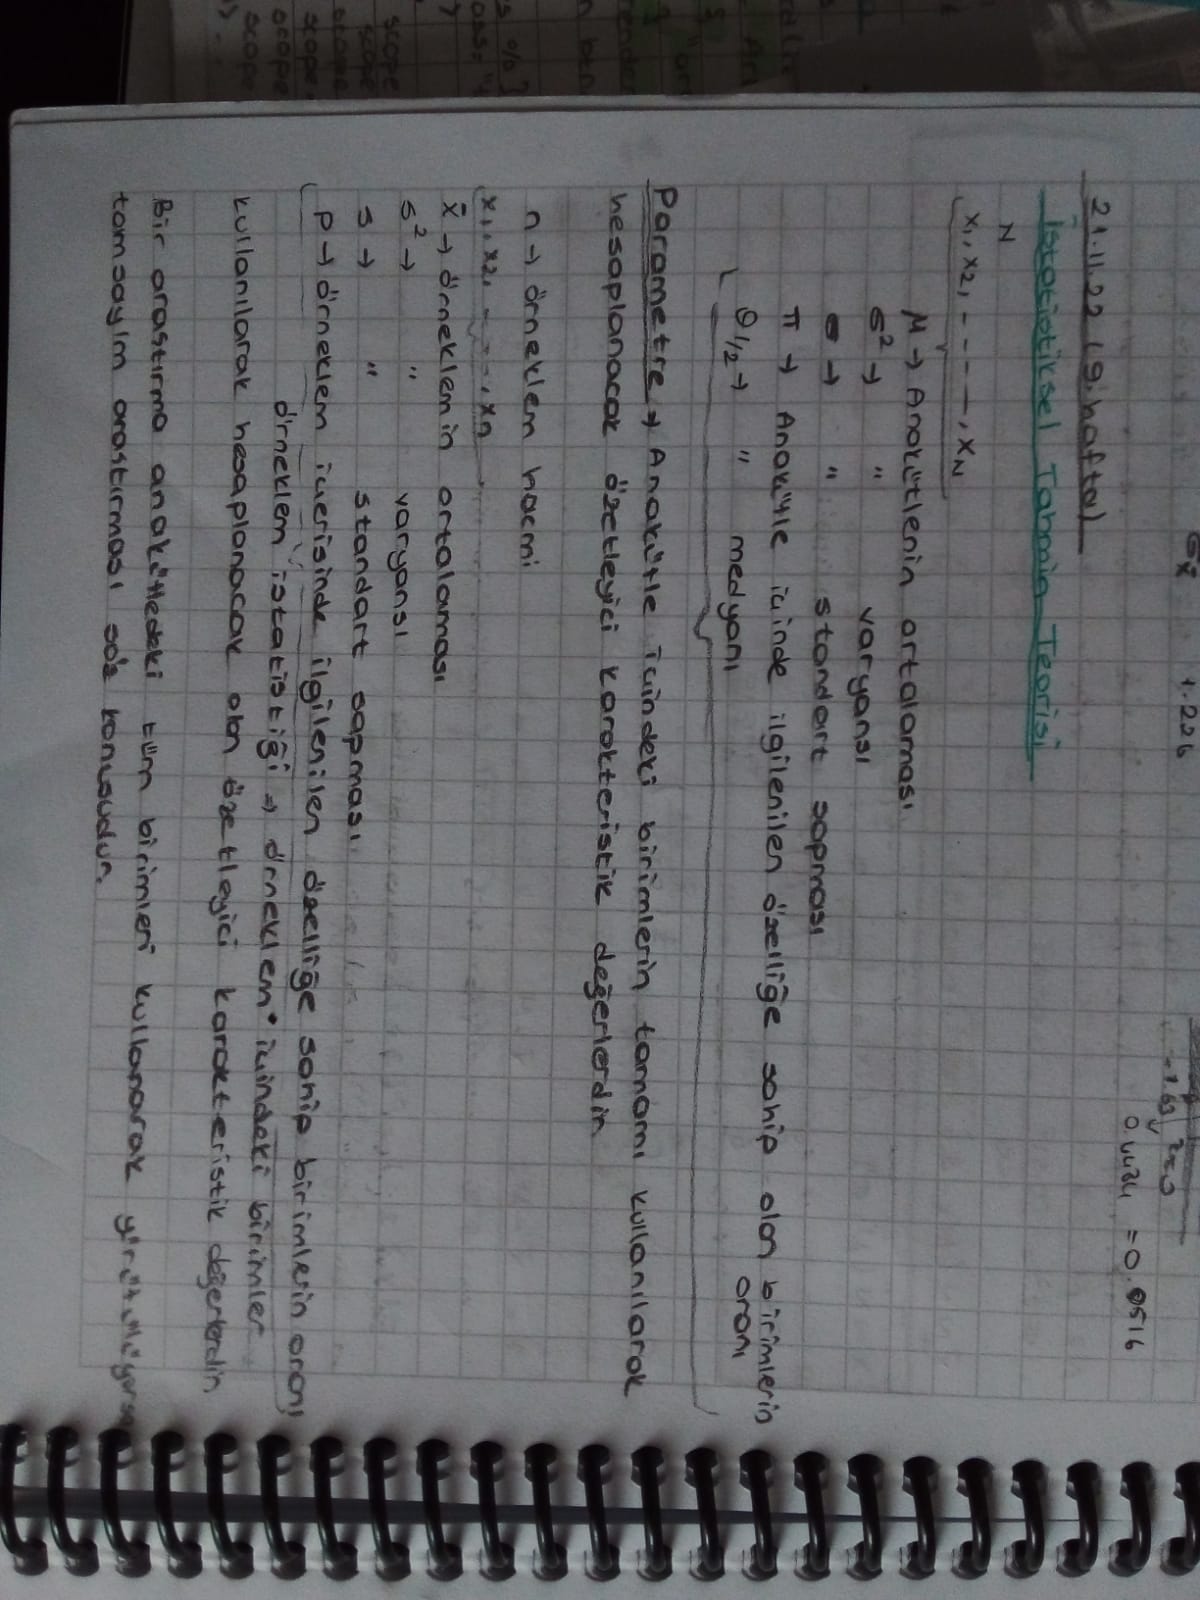 σx̄ 1.226
-1.63 z=0
0.4484 = 0.0516
21.11.22 (9.hafta)
İstatistiksel Tahmin Teorisi
N
x₁, x₂, - - - - -, xN
μ → Anakütlenin ortalaması
σ² → " varyansı
σ → " standart sapması
π → Anakütle içinde ilgilenilen özelliğe sahip olan birimlerin
oranı
θ1/2 → " medyanı
Parametre → Anakütle içindeki birimlerin tamamı kullanılarak
hesaplanacak özetleyici karakteristik değerlerdir.
n → örneklem hacmi
x₁, x₂, - - - -, xn
x̄ → örneklemin ortalaması
s² → " varyansı
s → " standart sapması
p → örneklem içerisinde ilgilenilen özelliğe sahip birimlerin oranı
örneklem istatistiği → örneklem içindeki birimler
kullanılarak hesaplanacak olan özetleyici karakteristik değerlerdir.
Bir araştırma anakütledeki tüm birimleri kullanarak yürütülüyorsa
tamsayım araştırması söz konusudur.